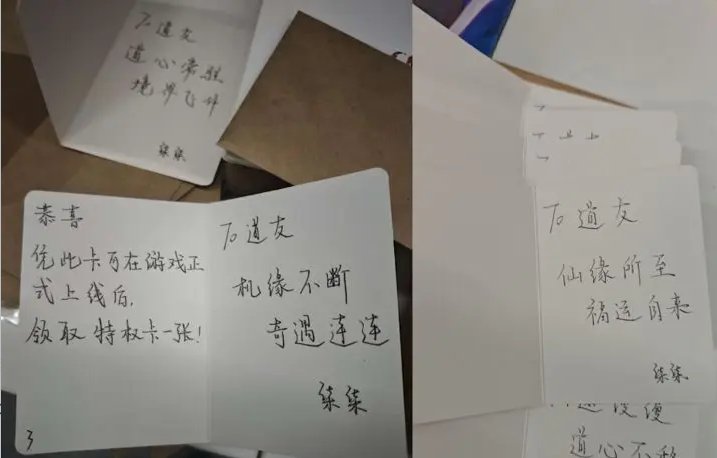 To 道友
道心常驻
境界飞升
柒柒
恭喜
凭此卡可在游戏正
式上线后,
领取 特权卡一张!
3
To 道友
机缘不断
奇遇连连
柒柒
To 道友
仙缘所至
福运自来
柒柒
道心不移